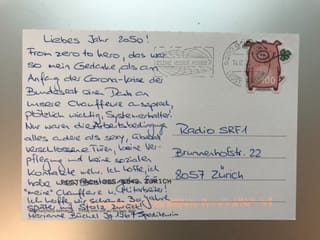 Liebes Jahr 2050!
From zero to hero, das war
so mein Gedanke, als am
Anfang der Corona-Krise der
Bundesrat einen Dank an
unsere Chauffeure aussprach,
plötzlich wichtig, Systemerhalter.
Nur waren die Arbeitsbedingungen
alles andere als sexy, überall
verschlossene Türen, keine Ver-
pflegung und keine sozialen
Kontakte mehr. Ich hoffe, ich
habe
"meine" Chauffeure
Ich hoffe, wir schauen 30 Jahre
später mit Stolz zurück!
Marianne Jg. 1967 Spediteurin
100
Radio SRF1
Brunnenhofstr. 22
8057 Zürich